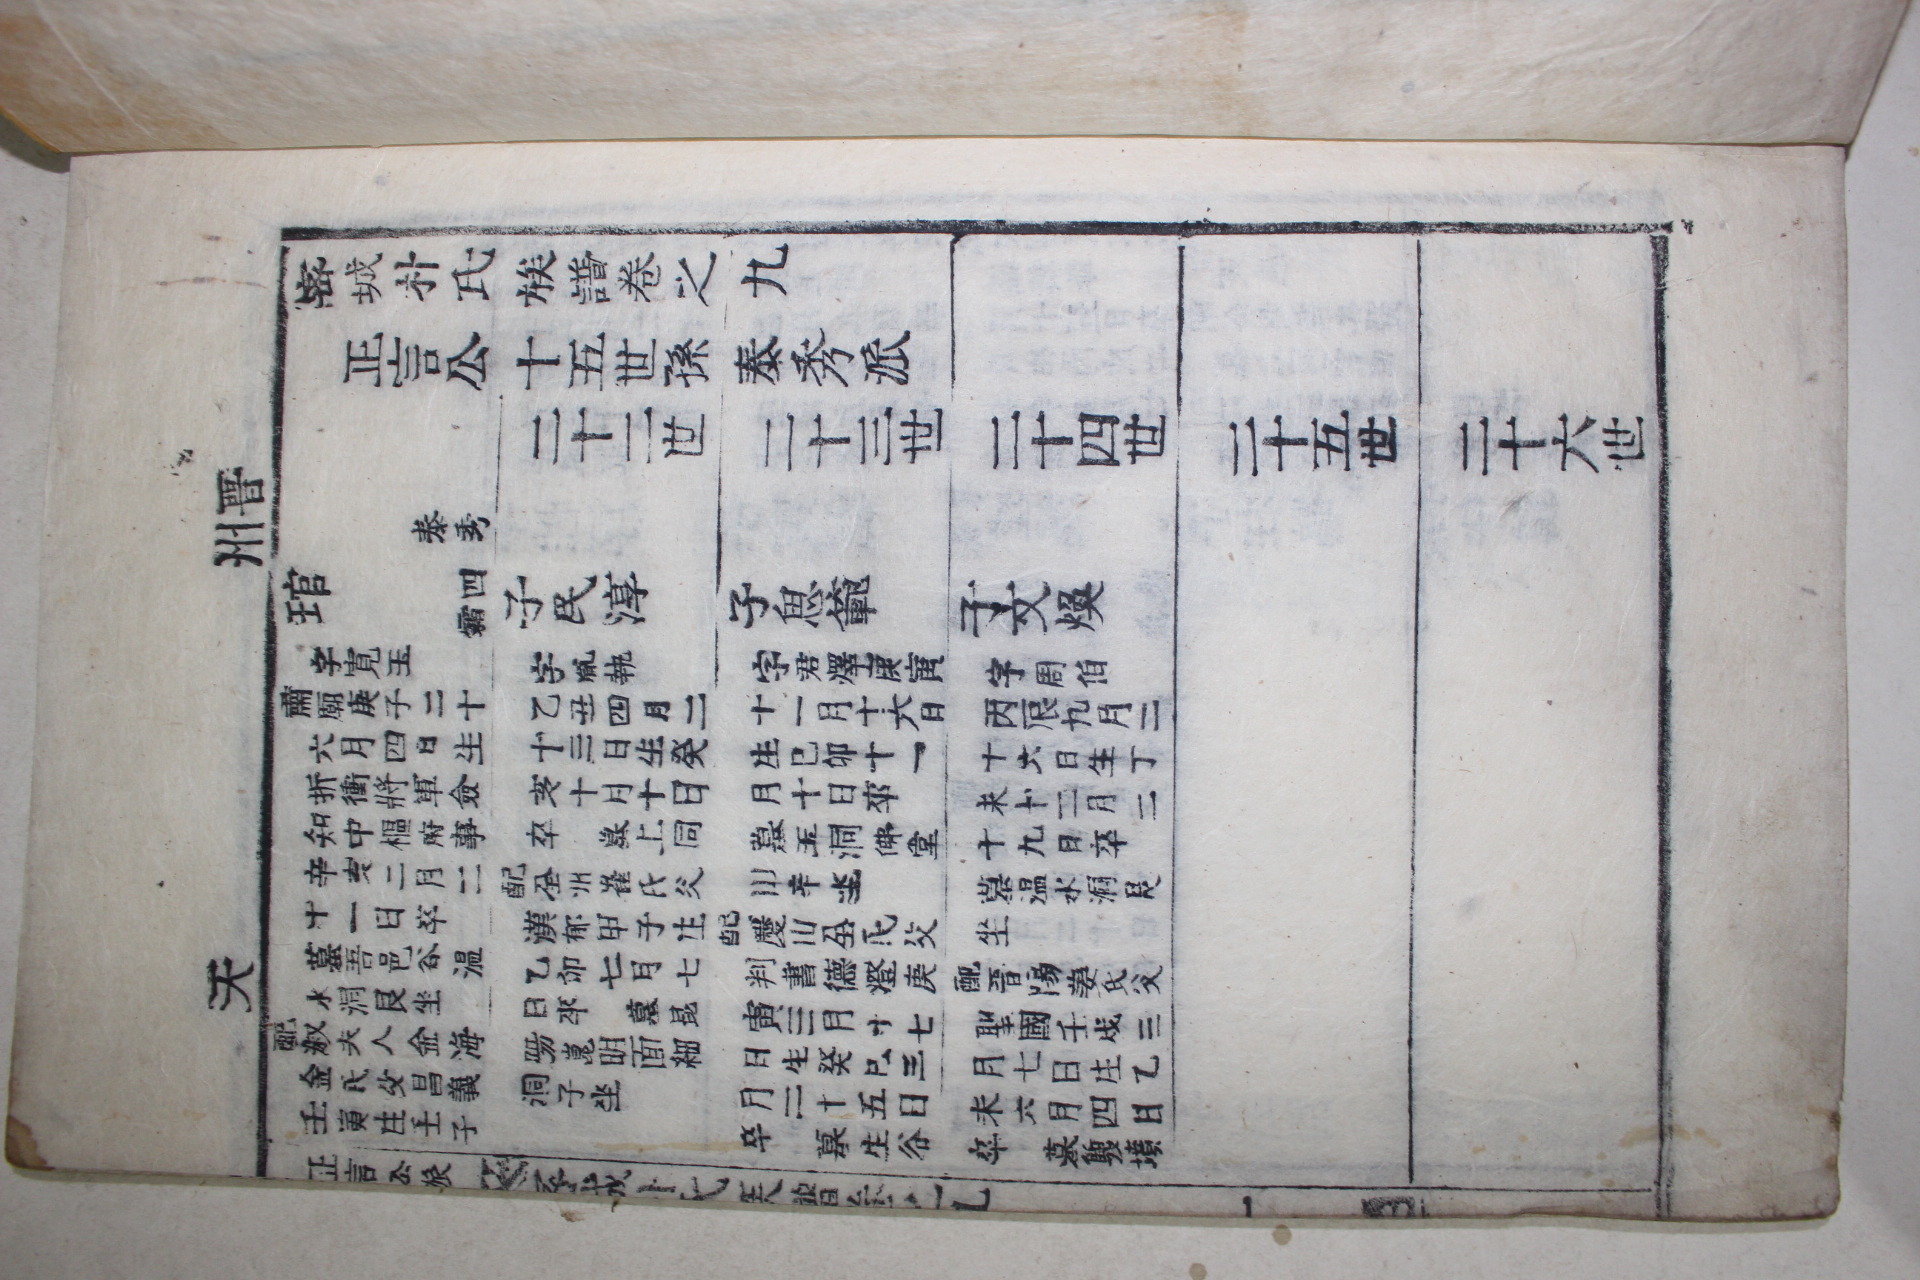 密城朴氏族譜卷之九
正言公十五世孫泰秀派
二十二世
二十三世
二十四世
二十五世
二十六世
晋州
泰秀
琯
四霜
字寬玉
肅廟庚子二十
六月四日生
折衝將軍僉
知中樞府事
辛亥二月二
十一日卒
墓吾邑谷溫
水洞艮坐
配淑夫人金海
金氏父昌義
壬寅生壬子
子民淳
字胤執
乙丑四月二
十三日生癸
亥十月十日
卒 墓上同
配全州崔氏父
漢郁甲子生
乙卯七月七
日卒 墓昆
陽崑明面細
洞子坐
子思範
字君澤庚寅
十一月十六日
生己卯十一
月十日卒
墓玉洞佛堂
川辛坐
配慶山全氏父
判書德燈庚
寅三月十七
日生癸巳三
月二十五日
卒 墓生谷
子文煥
字周伯
丙辰九月二
十六日生丁
未十二月二
十九日卒
墓溫水洞艮
坐
配晋陽姜氏父
聖國壬戌三
月七日生乙
未六月四日
卒 墓墳
天
正言公派